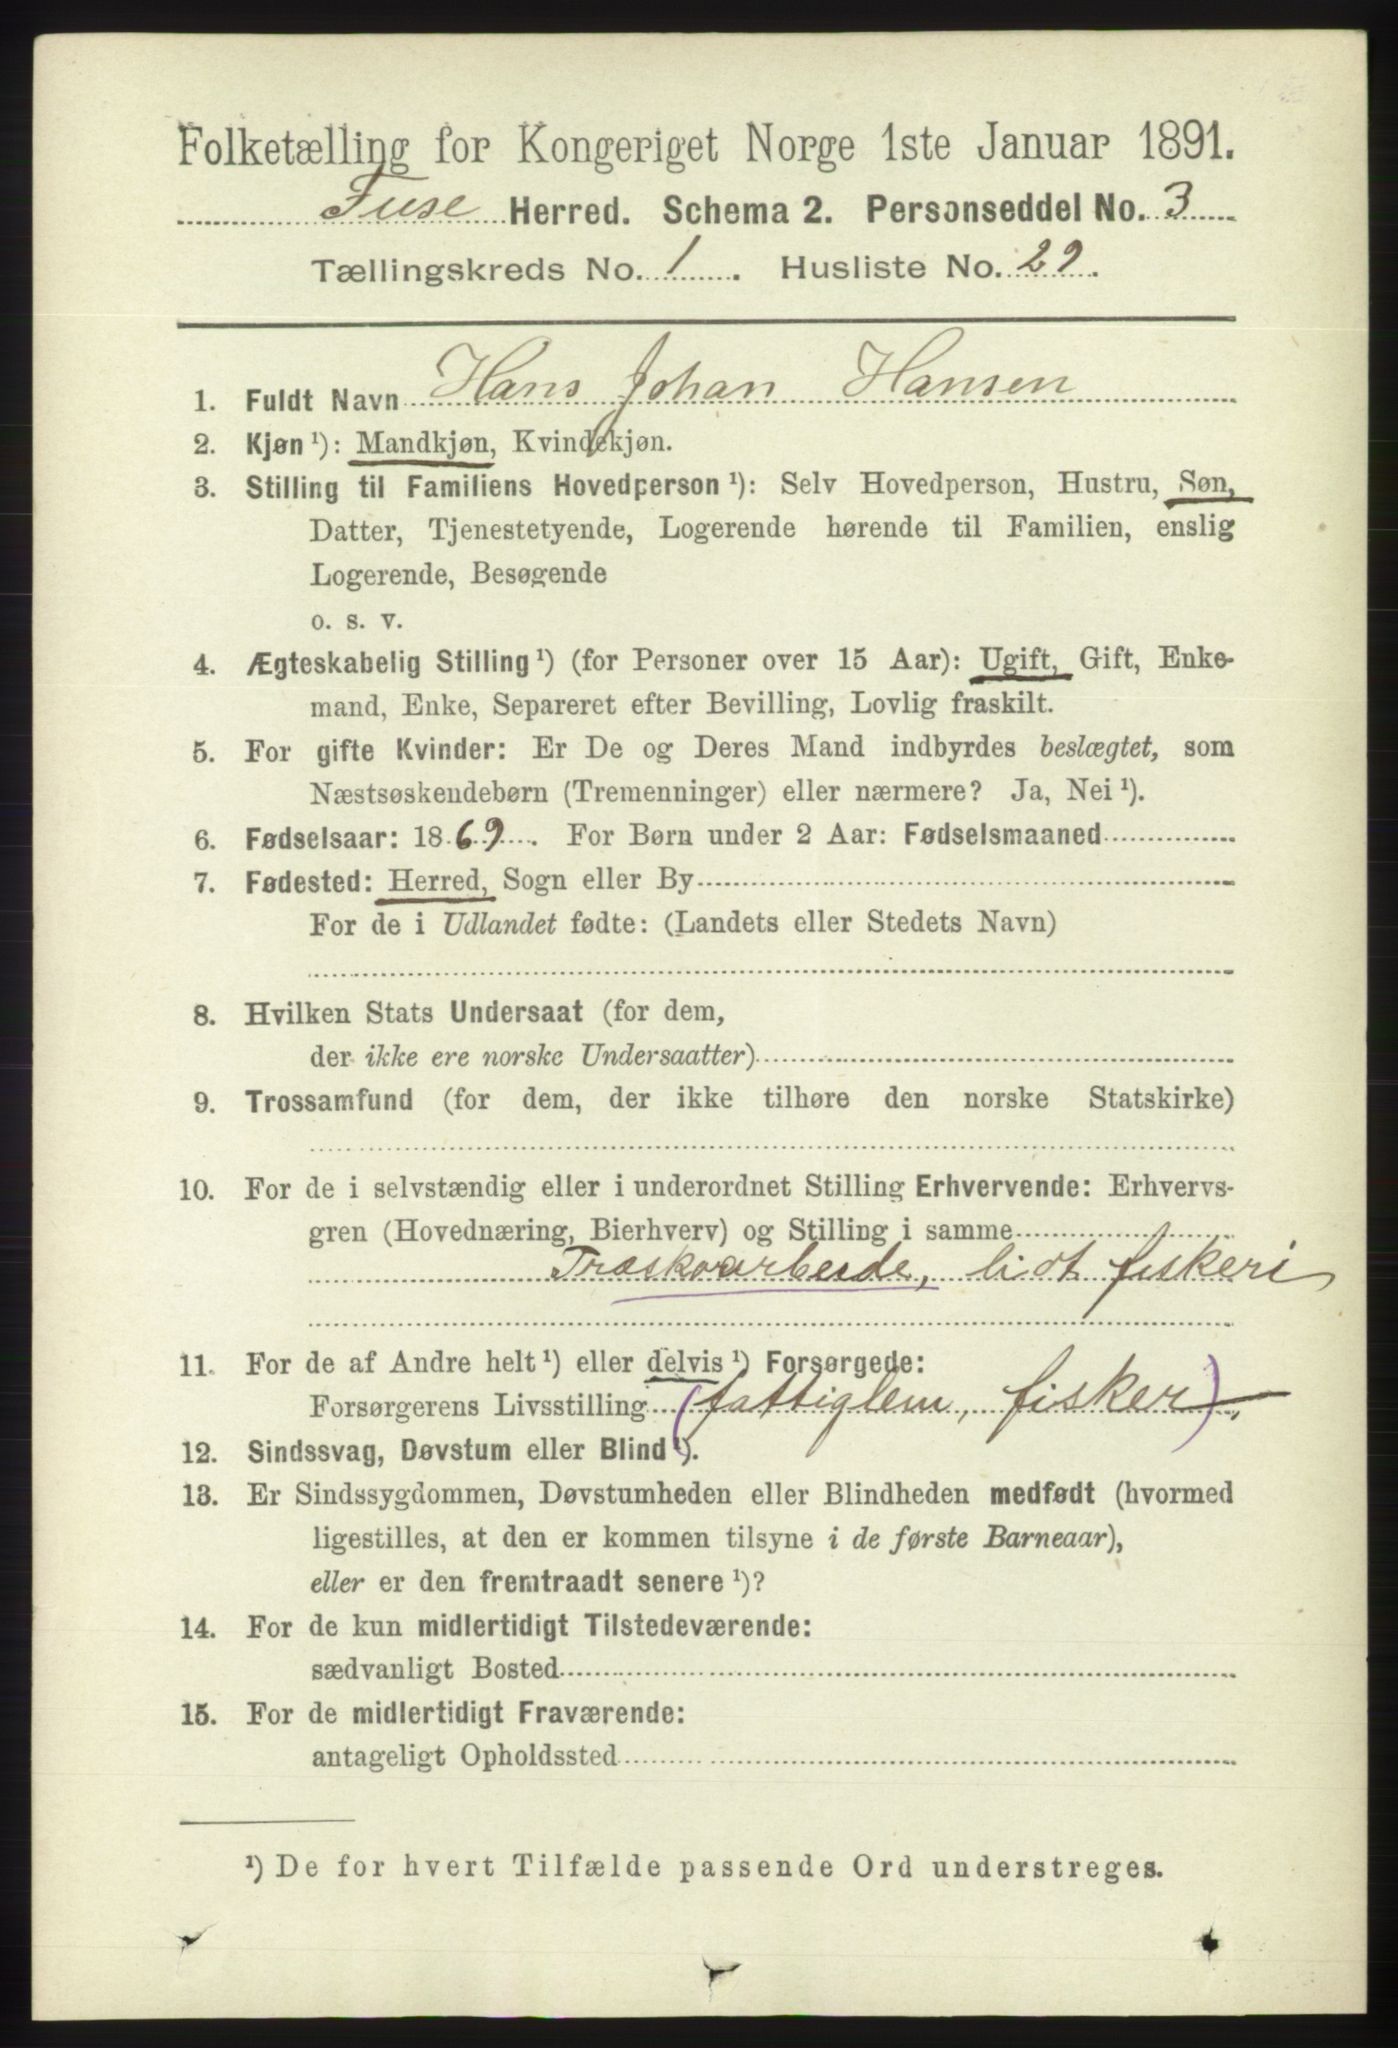 Folketælling for Kongeriget Norge 1ste Januar 1891.
Fuse Herred. Schema 2. Personseddel No. 3
Tællingskreds No. 1. Husliste No. 29.
1. Fuldt Navn Hans Johan Hansen
2. Kjøn ¹): Mandkjøn, Kvindekjøn.
3. Stilling til Familiens Hovedperson ¹): Selv Hovedperson, Hustru, Søn,
Datter, Tjenestetyende, Logerende hørende til Familien, enslig
Logerende, Besøgende
o. s. v.
4. Ægteskabelig Stilling ¹) (for Personer over 15 Aar): Ugift, Gift, Enke-
mand, Enke, Separeret efter Bevilling, Lovlig fraskilt.
5. For gifte Kvinder: Er De og Deres Mand indbyrdes beslægtet, som
Næstsøskendebørn (Tremenninger) eller nærmere? Ja, Nei ¹).
6. Fødselsaar: 1869. For Børn under 2 Aar: Fødselsmaaned
7. Fødested: Herred, Sogn eller By
For de i Udlandet fødte: (Landets eller Stedets Navn)
8. Hvilken Stats Undersaat (for dem,
der ikke ere norske Undersaatter)
9. Trossamfund (for dem, der ikke tilhøre den norske Statskirke)
10. For de i selvstændig eller i underordnet Stilling Erhvervende: Erhvervs-
gren (Hovednæring, Bierhverv) og Stilling i samme
Træskoarbeide, lidt fiskeri
11. For de af Andre helt ¹) eller delvis ¹) Forsørgede:
Forsørgerens Livsstilling (fattiglem, fisker).
12. Sindssvag, Døvstum eller Blind ¹).
13. Er Sindssygdommen, Døvstumheden eller Blindheden medfødt (hvormed
ligestilles, at den er kommen tilsyne i de første Barneaar),
eller er den fremtraadt senere ¹)?
14. For de kun midlertidigt Tilstedeværende:
sædvanligt Bosted
15. For de midlertidigt Fraværende:
antageligt Opholdssted
¹) De for hvert Tilfælde passende Ord understreges.